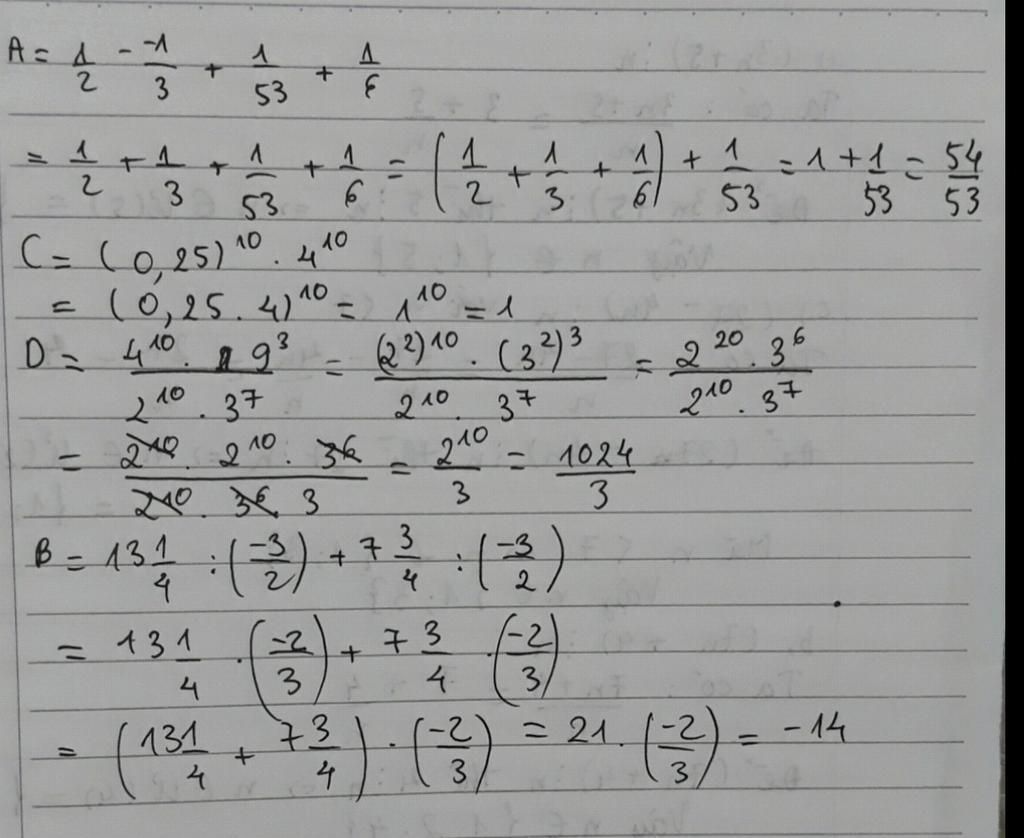 A = 1/2 - -1/3 + 1/53 + 1/6
= 1/2 + 1/3 + 1/53 + 1/6 = (1/2 + 1/3 + 1/6) + 1/53 = 1 + 1/53 = 54/53
C = (0,25)^10 . 4^10
= (0,25 . 4)^10 = 1^10 = 1
D = (4^10 . 9^3)/(2^10 . 3^7) = ((2^2)^10 . (3^2)^3)/(2^10 . 3^7) = (2^20 . 3^6)/(2^10 . 3^7)
= (2^10 . 2^10 . 3^6)/(2^10 . 3^6 . 3) = 2^10/3 = 1024/3
B = 13 1/4 : (-3/2) + 7 3/4 : (-3/2)
= 13 1/4 . (-2/3) + 7 3/4 . (-2/3)
= (13 1/4 + 7 3/4) . (-2/3) = 21 . (-2/3) = -14